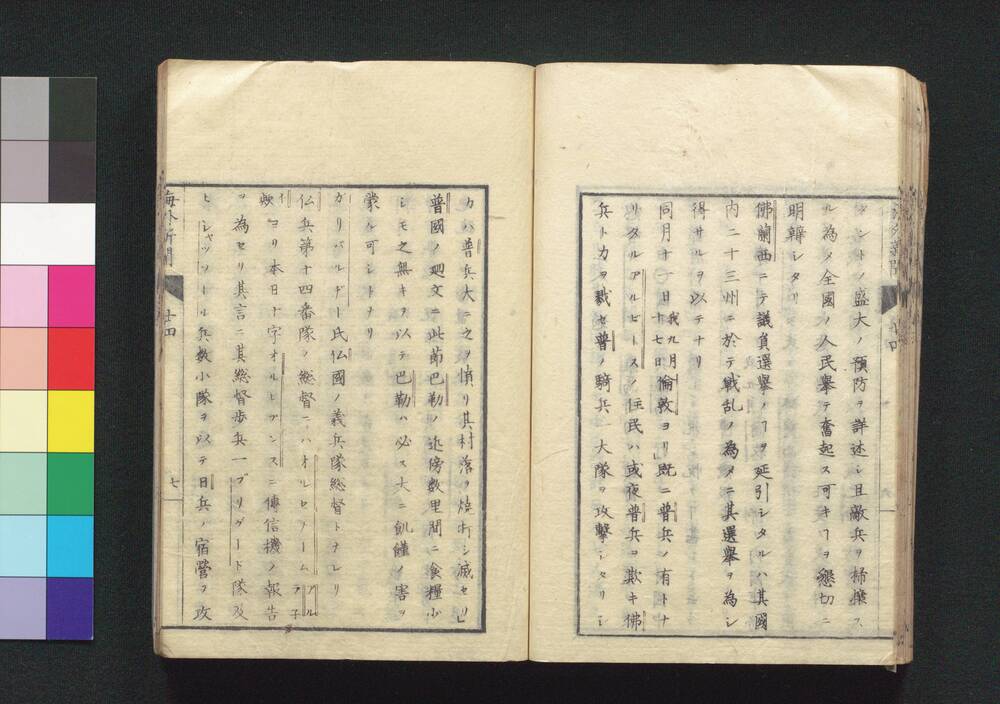 ガントノ盛大ノ預防ヲ詳述シ且敵兵ヲ掃攘ス
ル為メ全國ノ人民擧テ奮起ス可キヿヲ懇切ニ
明辯シタリ
佛蘭西ニテ議員選擧ノヿヲ延引シタルハ其國
内二十三州ニ於テ戰乱ノ為メニ其選擧ヲ為シ
得サルヲ以テナリ
同月十一日我九月十七日倫敦ヨリ既ニ普兵ノ有トナ
リタルアルビースノ住民ハ或夜普兵ヲ欺キ佛
兵トカヲ戮セ普ノ騎兵一大隊ヲ攻撃シセリシ
カハ普兵大ニ之ヲ憤リ其村落ヲ燒打シ滅セリ」
普國ノ廻文ニ此節巴勒ノ近傍數里間ニ食糧少
シモ之無キヲ以テ巴勒ハ必ス大ニ飢饉ノ害ヲ
蒙ル可シトナリ
ガリバルヂー氏仏國ノ義兵隊總督トナレリ
仏兵第十四番隊ノ總督
ヨリ本日十字オルレアンスニ傳信機ノ報告
ヲ為セリ其言ニ其總督歩兵一ブリグート隊及
ヒシャッソール兵數小隊ヲ以テ日兵ノ宿營ヲ攻
海外新聞
廿四
七